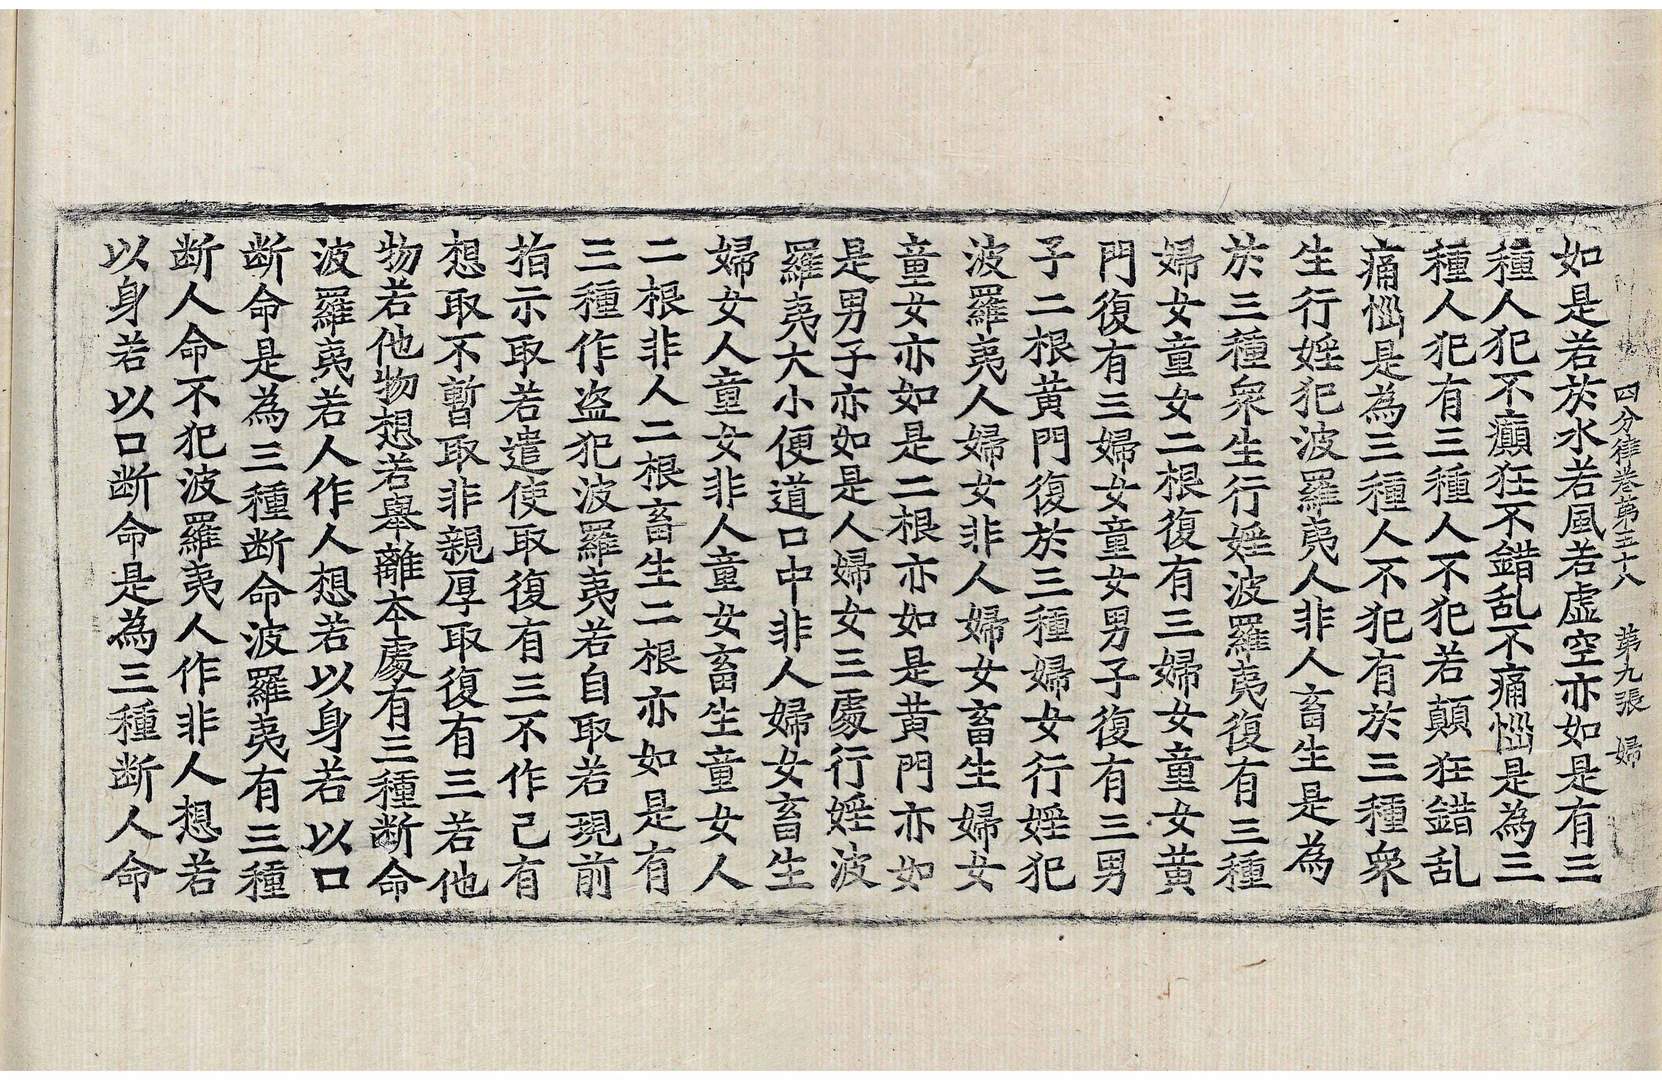 四分律卷第五十八　第九張　婦
如是若於水若風若虛空亦如是有三
種人犯不癲狂不錯乱不痛惱是為三
種人犯有三種人不犯若顛狂錯乱
痛惱是為三種人不犯有於三種衆
生行婬犯波羅夷人非人畜生是為
於三種衆生行婬波羅夷復有三種
婦女童女二根復有三婦女童女黃
門復有三婦女童女男子復有三男
子二根黃門復於三種婦女行婬犯
波羅夷人婦女非人婦女畜生婦女
童女亦如是二根亦如是黃門亦如
是男子亦如是人婦女三處行婬波
羅夷大小便道口中非人婦女畜生
婦女人童女非人童女畜生童女人
二根非人二根畜生二根亦如是有
三種作盜犯波羅夷若自取若現前
指示取若遣使取復有三不作己有
想取不暫取非親厚取復有三若他
物若他物想若舉離本處有三種断命
波羅夷若人作人想若以身若以口
断命是為三種断命波羅夷有三種
断人命不犯波羅夷人作非人想若
以身若以口断命是為三種断人命